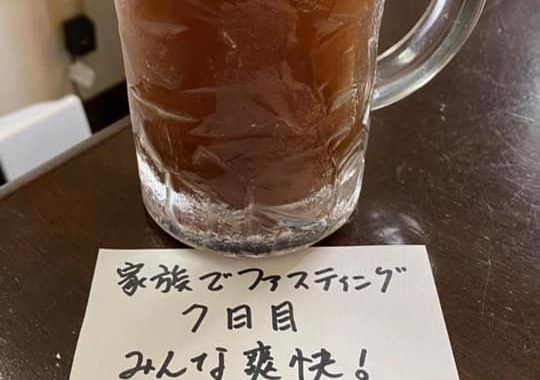 家族でファスティング
7日目
みんな爽快!